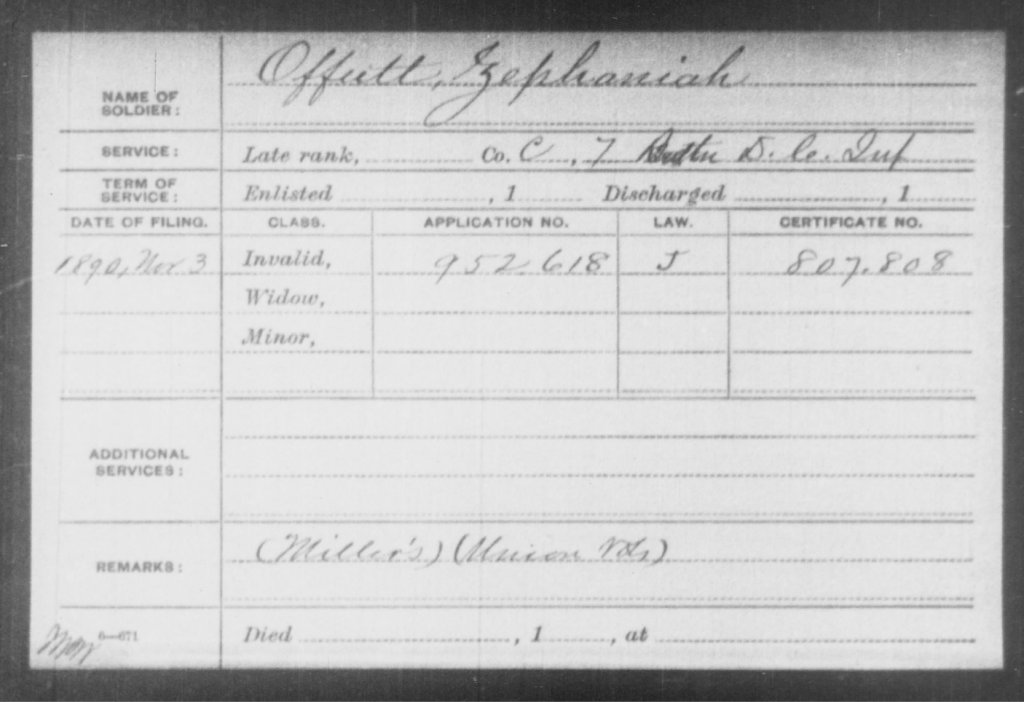 NAME OF SOLDIER: Offutt, Zephaniah
SERVICE: Late rank, Co. C, 7 Battn D. C. Inf
TERM OF SERVICE: Enlisted , 1 Discharged , 1
DATE OF FILING. CLASS. APPLICATION NO. LAW. CERTIFICATE NO.
1890, Nov. 3 Invalid, 952.618 J 807.808
Widow,
Minor,
ADDITIONAL SERVICES:
REMARKS: (Miller's) (Union Vols)
6—671 Died , 1 , at